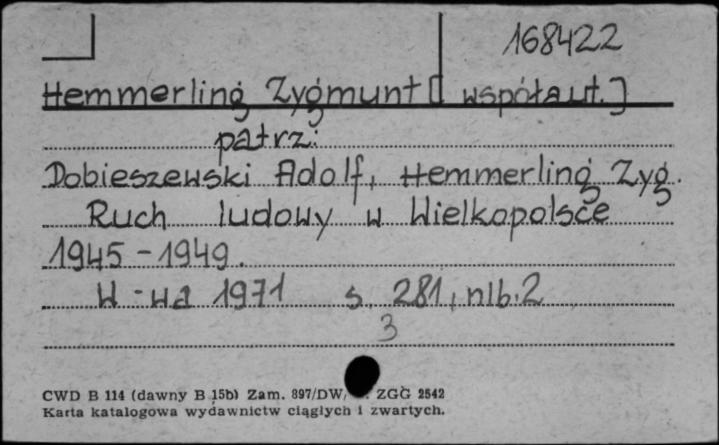 168422
Hemmerling Zygmunt [współaut.]
patrz:
Dobieszewski Adolf, Hemmerling Zyg.
Ruch ludowy w Wielkopolsce
1945-1949.
W-wa 1971 s. 281, nlb. 2
3
CWD B 114 (dawny B 15b) Zam. 897/DW/ ZGG 2542
Karta katalogowa wydawnictw ciągłych i zwartych.